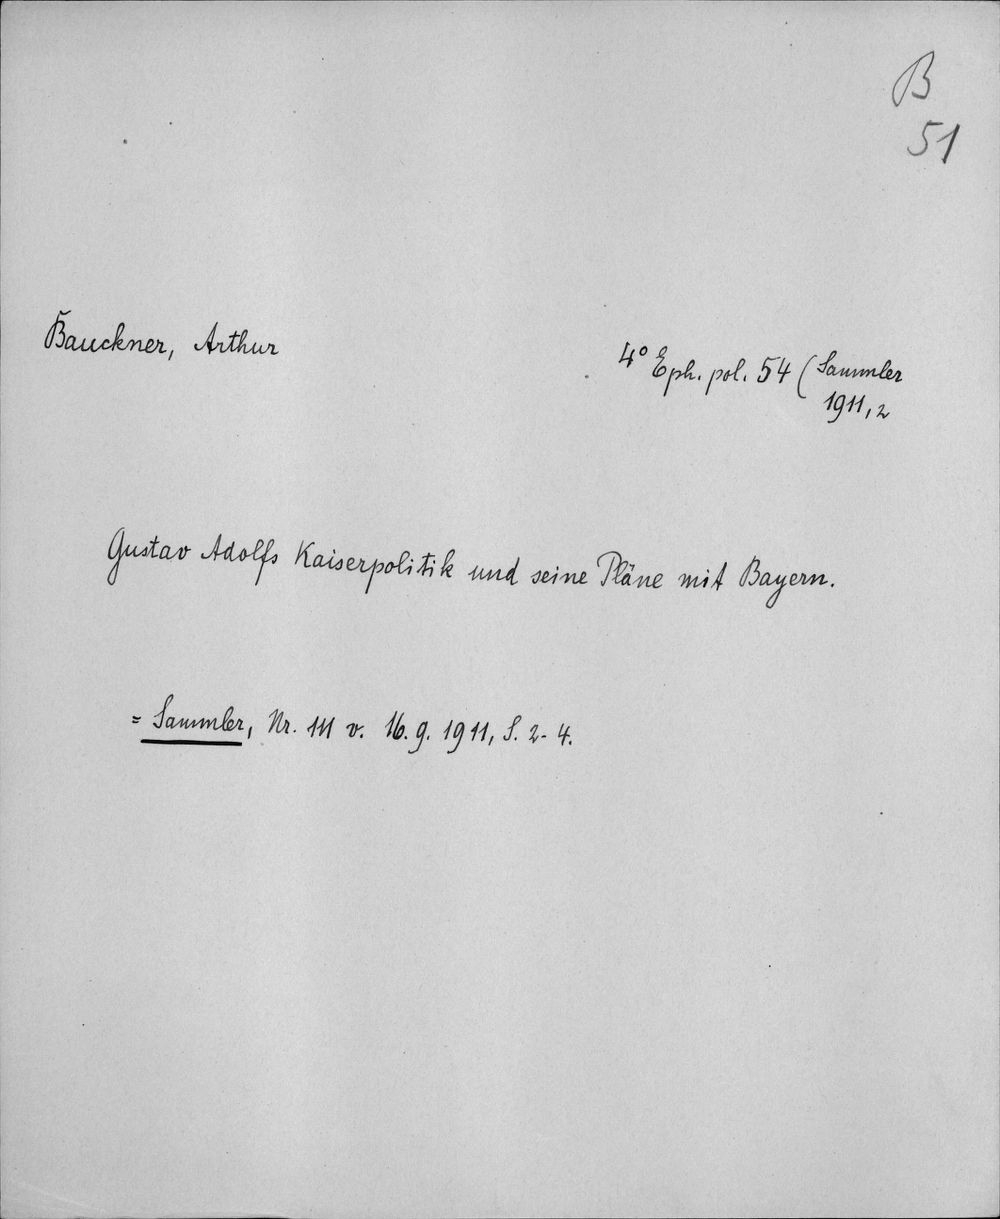 B
51
Bauckner, Arthur
4° Eph. pol. 54 (Sammler
1911, 2
Gustav Adolfs Kaiserpolitik und seine Pläne mit Bayern.
= Sammler, Nr. 111 v. 16. 9. 1911, S. 2-4.